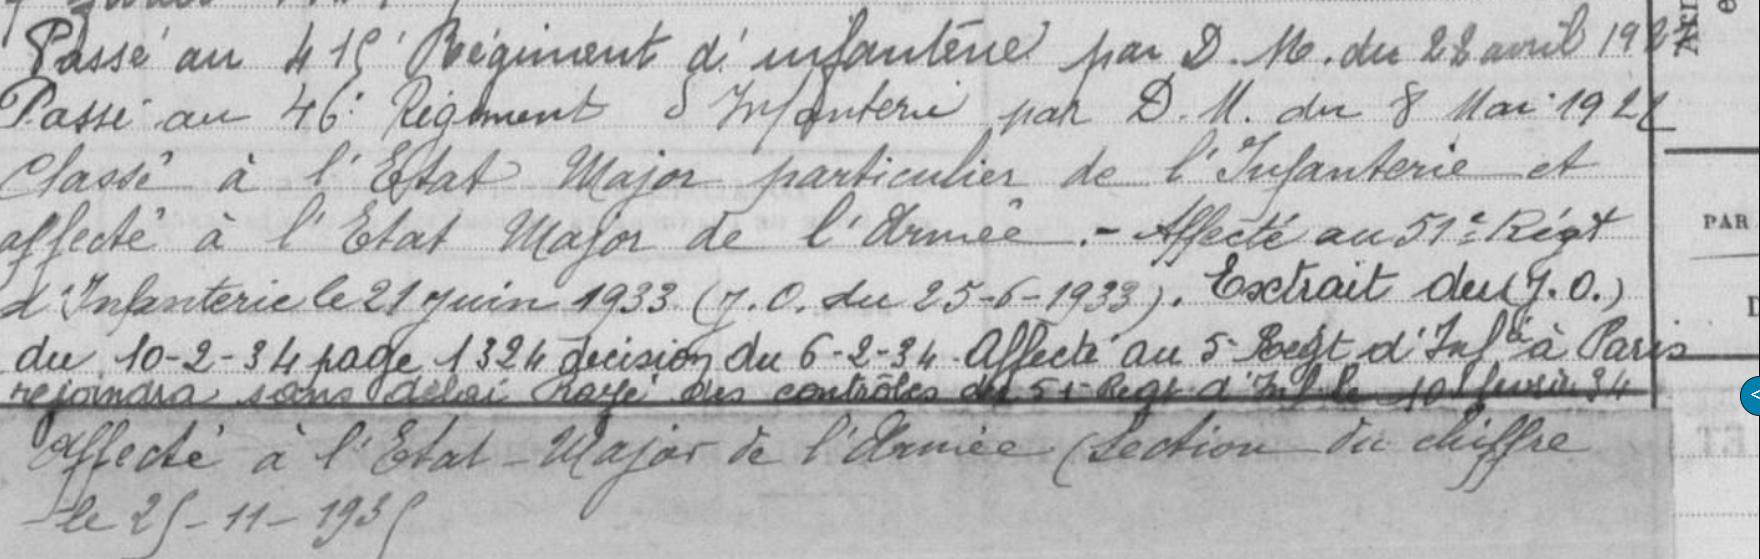 Passé au 415e Régiment d'infanterie par D. M. du 22 avril 192
Passé au 46e Régiment d'Infanterie par D. M. du 8 Mai 1922
Classé à l'Etat Major particulier de l'Infanterie et
affecté à l'Etat Major de l'Armée .- Affecté au 51e Régt
d'Infanterie le 21 Juin 1933 (J.O. du 25-6-1933). Extrait du (J.O.)
du 10-2-34 page 1324 décision du 6-2-34. Affecté au 5 Regt d'Inf.ie à Paris
rejoindra sans délai Rayé des contrôles du 51 Regt d'Inf le 10 février 34
Affecté à l'Etat-Major de l'Armée (Section du chiffre
le 25-11-1935
PAR
ET